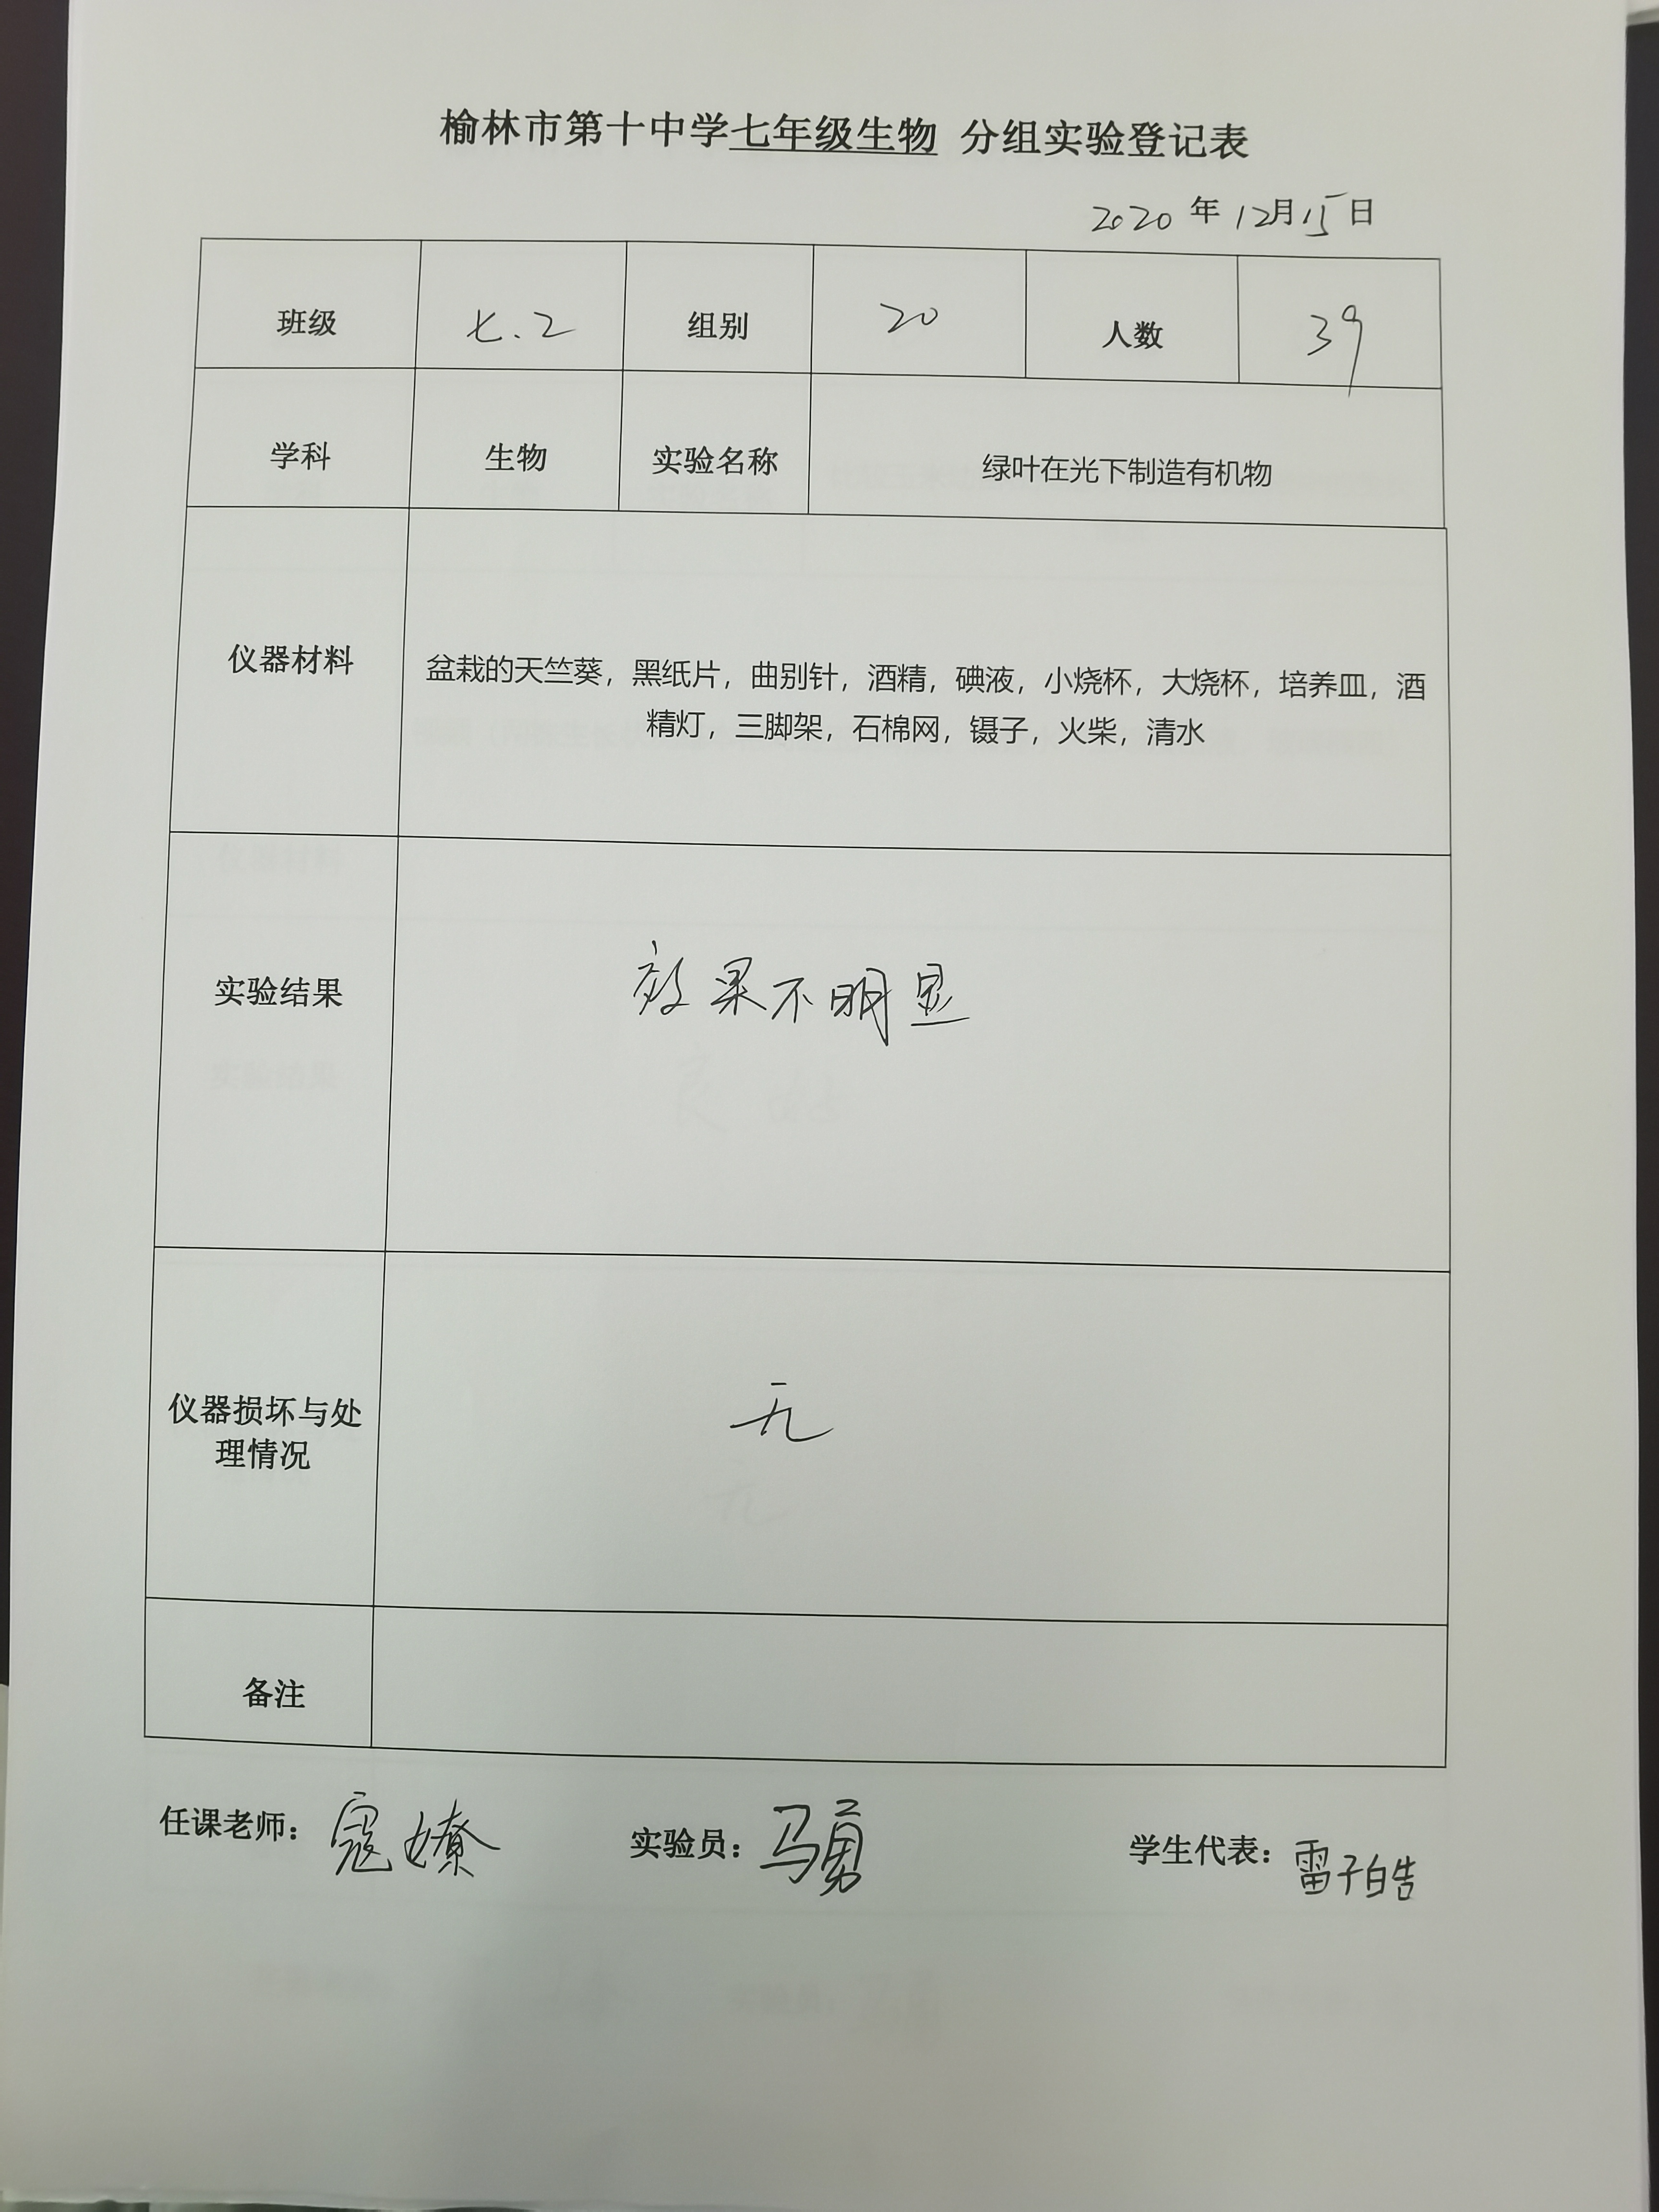 榆林市第十中学七年级生物 分组实验登记表
2020 年 12月15日
班级 七.2 组别 20 人数 39
学科 生物 实验名称 绿叶在光下制造有机物
仪器材料
盆栽的天竺葵，黑纸片，曲别针，酒精，碘液，小烧杯，大烧杯，培养皿，酒
精灯，三脚架，石棉网，镊子，火柴，清水
实验结果 效果不明显
仪器损坏与处
理情况
无
备注
任课老师：寇嫽 实验员：马勇 学生代表：雷子皓